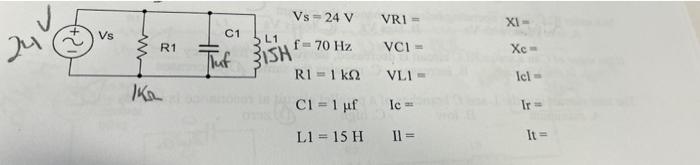 Vs = 24 V VR1 = Xl =
24V Vs R1 C1 1uf L1 15H
f = 70 Hz VC1 = Xc =
R1 = 1 kΩ VL1 = Icl =
1KΩ
C1 = 1 µf Ic = Ir =
L1 = 15 H Il = It =